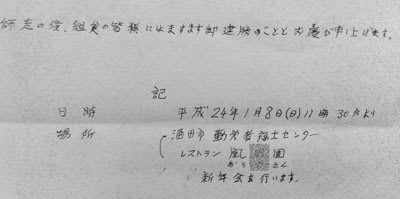 師走の候、組員の皆様にはますます御建勝のこととお慶び申し上げます。
記
日時 平成24年1月8日(日)11時30分より
場所 酒田市 勤労者福祉センター
レストラン
新年会を行います。